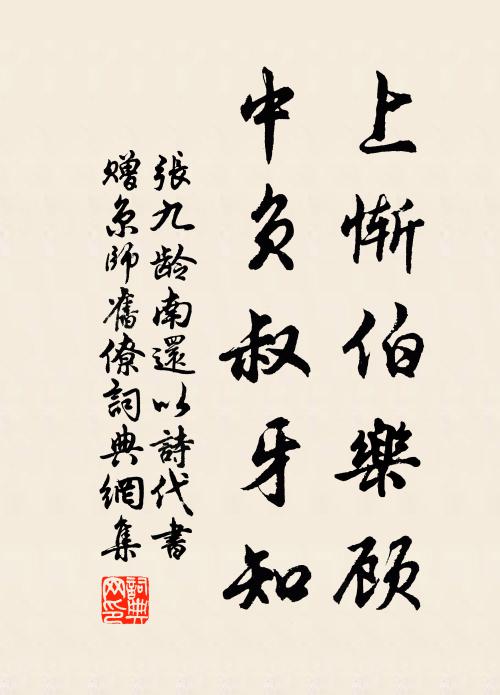 上惭伯樂顾
中负叔牙知
張九龄南還以詩代書
赠京師舊僚詞典網集
詞典
网印